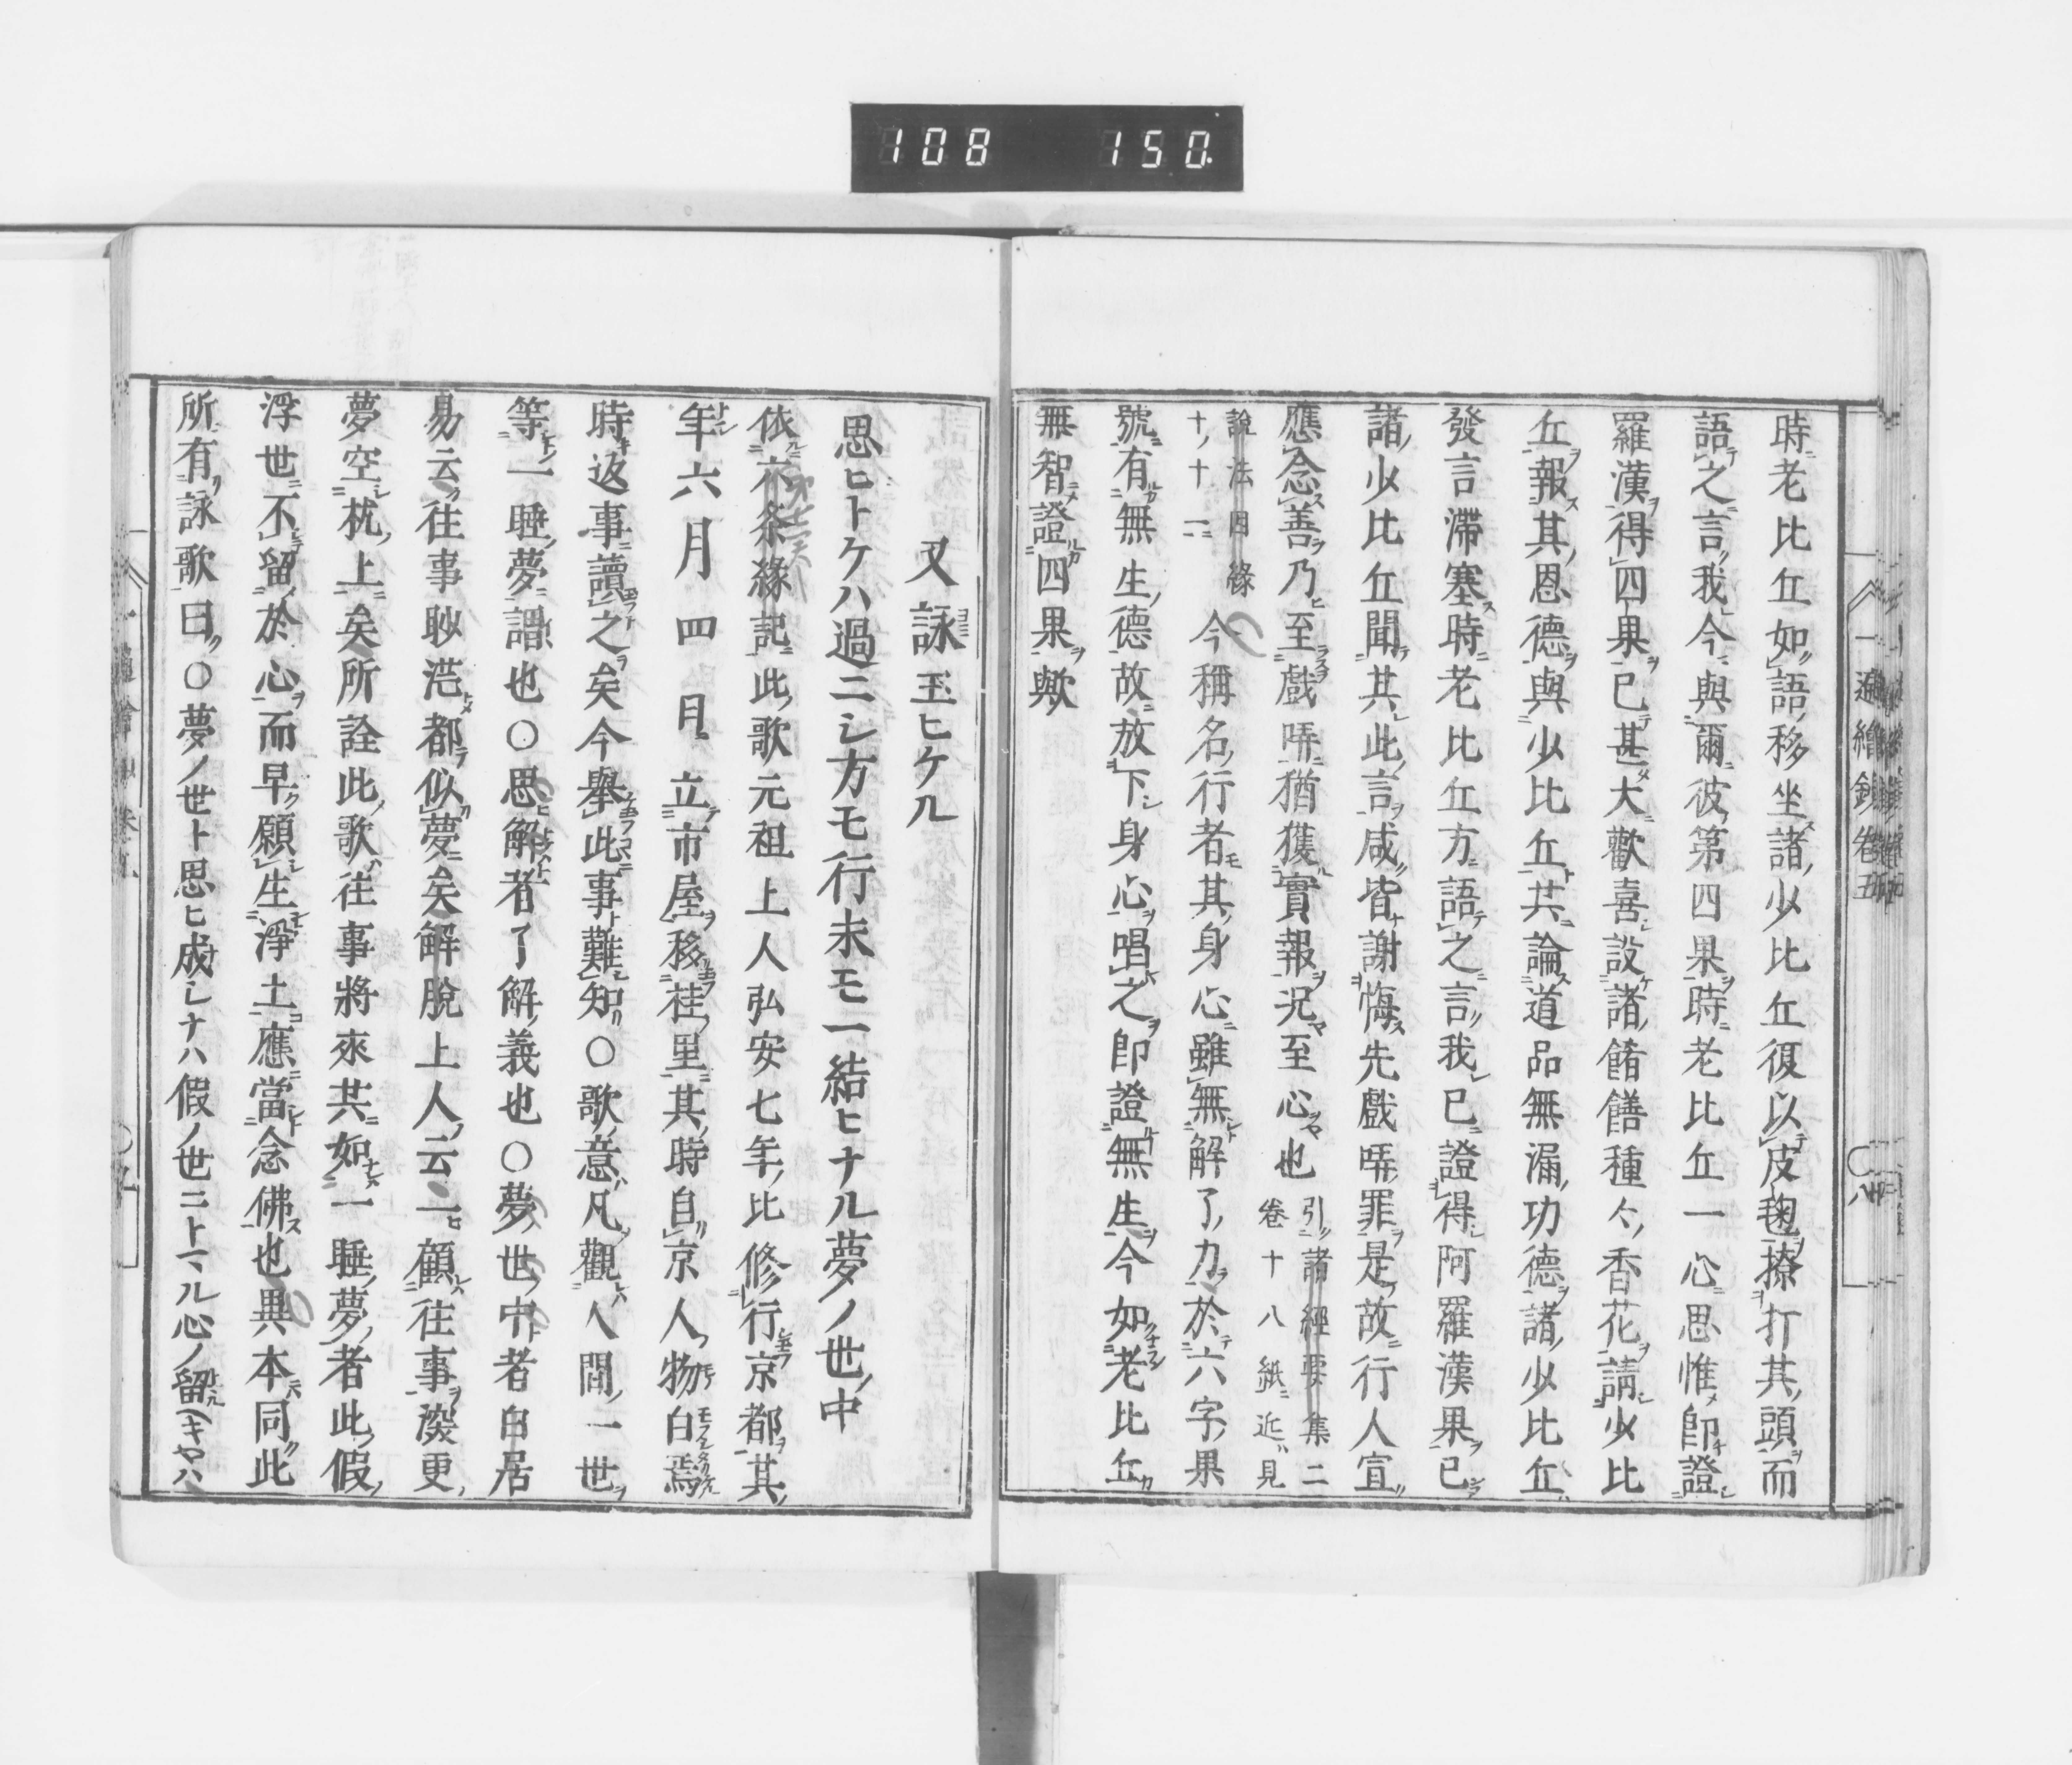 108 150
一遍繪鈔卷五
時老比丘如語移坐諸少比丘復以皮毱撩打其頭而
語之言我今與爾彼第四果時老比丘一心思惟即證
羅漢得四果已甚大歡喜設諸餚饍種々香花請少比
丘報其恩德與少比丘共論道品無漏功德諸少比丘
發言滯塞時老比丘方語之言我已證得阿羅漢果已
諸少比丘聞其此言咸皆謝悔先戲哢罪是故行人宜
應念善乃至戲哢猶獲實報况至心也 引諸經要集二
卷十八紙近見
說法因緣
十ノ十二 今稱名行者其身心雖無解了力於六字果
號有無生德故放下身心唱之即證無生今如老比丘
無智證四果歟
又詠玉ヒケル
思ヒトケハ過ニシ方モ行末モ一結ヒナル夢ノ世ノ中
依六条緣記此歌元祖上人弘安七年比修行京都其
年六月四日立市屋移桂里其時自京人物白焉
時返事讀之矣今舉此事難知○歌意凡觀人間一世
等一睡夢謂也○思解者了解義也○夢世中者白居
易云往事眇茫都似夢矣解脫上人云一顧往事渡更
夢空枕上矣所詮此歌往事將來共如一睡夢者此假
浮世不留於心而早願生淨土應當念佛也異本同此
所有詠歌曰○夢ノ世ト思ヒ成シナハ假ノ世ニトマル心ノ留キヤハ